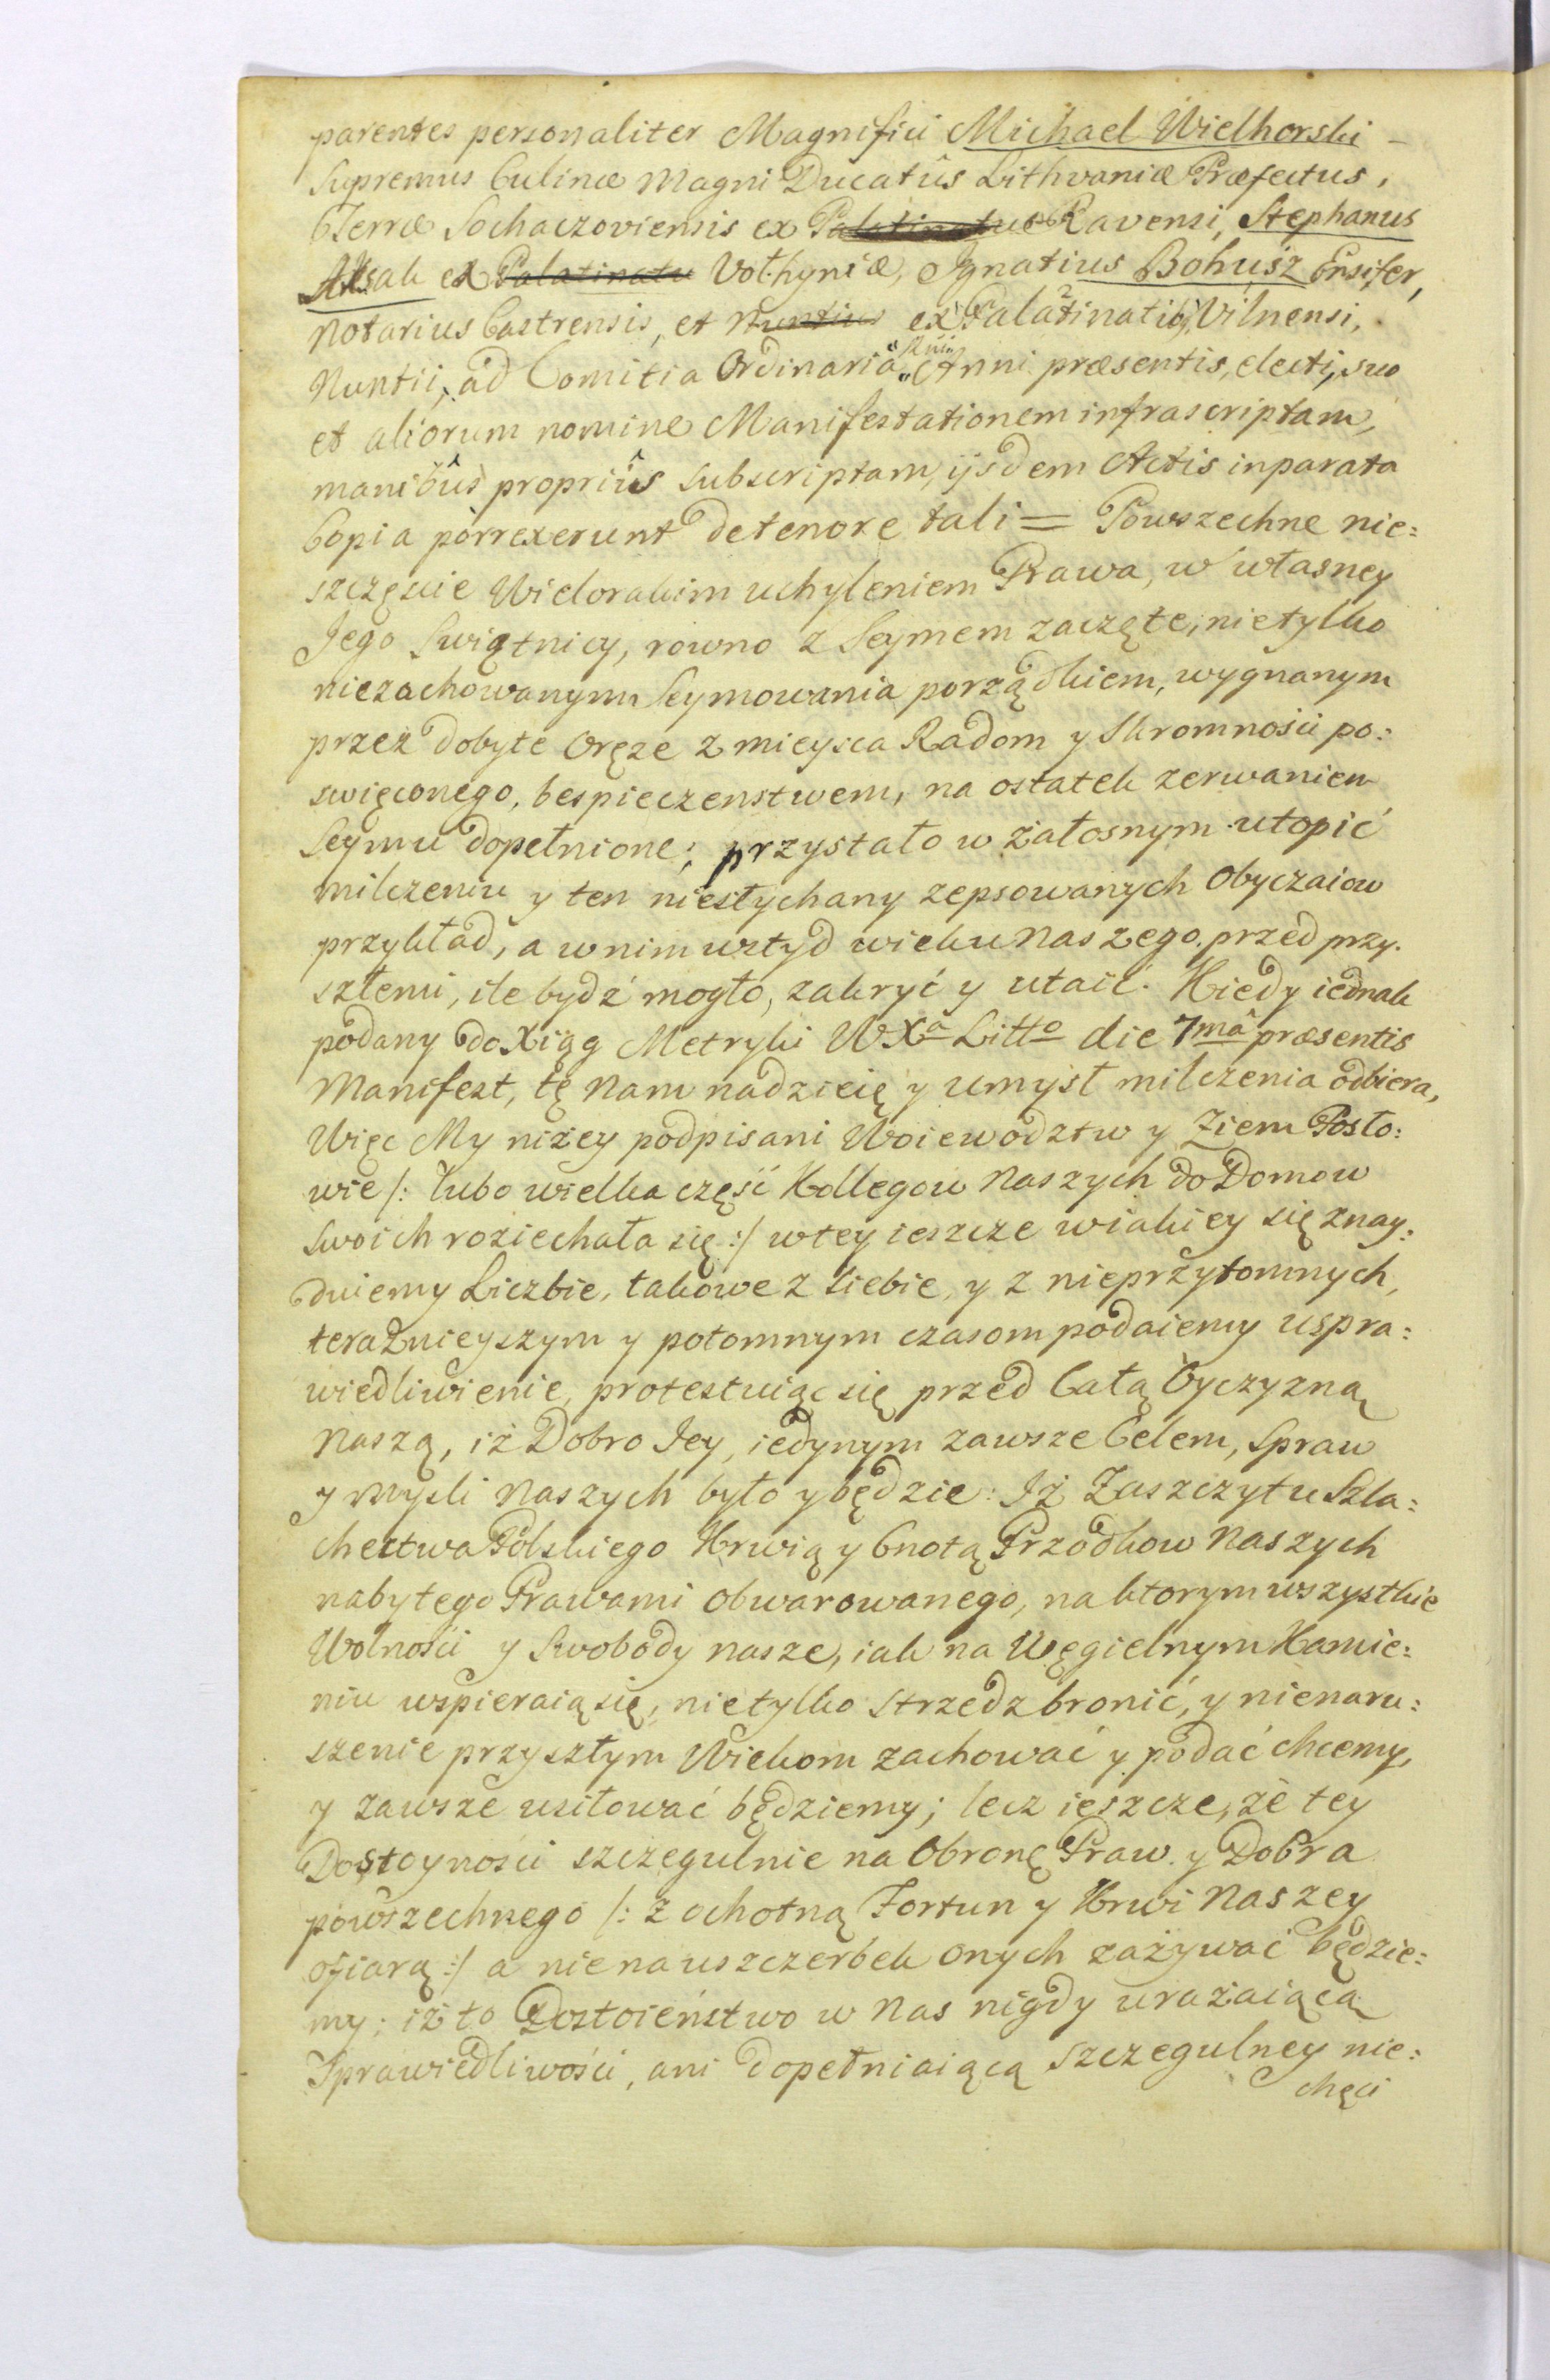 parentes personaliter Magnifici Michael Wielhorski –
Supremus Culinæ Magni Ducatûs Lithvaniæ Præfectus,
Terræ Sochaczoviensis ex Palatinatu Ravensi, Stephanus
Aksak ex Palatinatu Volhyniæ, Ignatius Bohusz Ensifer,
Notarius Castrensis, et Nuntius ex Palatinatib9 Vilnensi,
Nuntii, ad Comitia Ordinaria Anni præsentis, electi, suo
et aliorum nomine Manifestationem infrascriptam,
manibûs propriîs subscriptam, ijsdem Actis inparata
Copia porrexerunt de tenore tali = Powszechne nie:
szczęscie Wielorakim uchyleniem Prawa, w własney
Jego Swiątnicy, rowno z Seymem zaczęte, nietylko
niezachowanym Seymowania porządkiem, wygnanym
przez dobyte Oręże z mieysca Radom y Skromności po:
swięconego, bespieczenstwem, na ostatek zerwaniem
Seymu dopełnione; przystało w żałosnym utopić
milczeniu y ten niesłychany zepsowanych Obyczaiow
przykład, a wnim wstyd wieku Naszego przed przy.
szłemi, ile bydź mogło, zakryć y utaić. Kiedy iednak
podany do Xiąg Metryki W Xa Litto die 7mâ præsentis
Manifest, tę Nam nadzieię y umysł milczenia odbiera,
Więc My niżey podpisani Woiewodztw y Ziem Posło:
wie /: lubo wielka część Kollegow Naszych do Domow
Swoich roziechała się :/ wtey ieszcze wiakiey się znay:
duiemy Liczbie, takowe z siebie, y z nieprzytomnych,
teraznieyszym y potomnym czasom podaiemy uspra:
wiedliwienie, protestuiąc się przed Całą Oyczyzną
Naszą, iż Dobro Jey, iedynym zawsze Celem, Spraw
y Mysli Naszych było y będzie: Iż Zaszczytu Szla:
chectwa Polskiego Krwią y Cnotą Przodkow Naszych
nabytego Prawami Obwarowanego, na ktorym wszystkie
Wolności y Swobody nasze, iak na Węgielnym Kamie:
niu wspieraią się, nietylko strzedz bronić, y nienaru:
szenie przyszłym Wiekom zachować y podać chcemy,
y zawsze usiłować będziemy; lecz ieszcze, że tey
Dostoyności szczegulnie na Obronę Praw y Dobra
powszechnego /: z ochotną Fortun y Krwi Naszey
ofiarą :/ a nie na uszczerbek Onych zażywać będzie:
my; iż to Dostoieństwo w Nas nigdy urażaiącą
Sprawiedliwości, ani dopełniaiącą szczegulney nie:
chęci